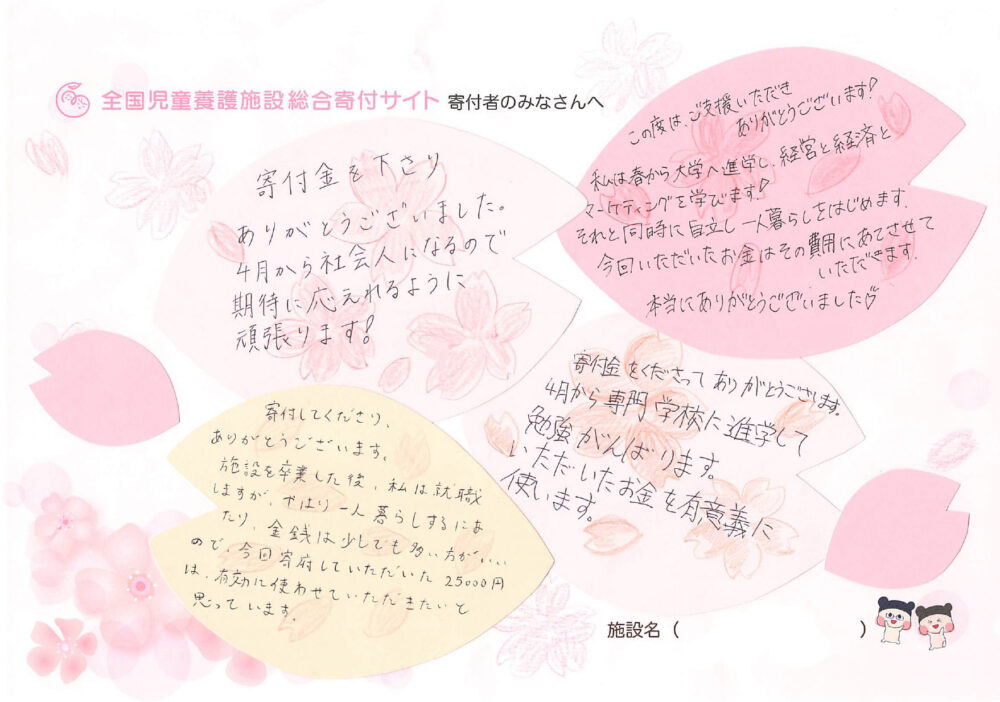 全国児童養護施設総合寄付サイト 寄付者のみなさんへ
寄付金を下さり
ありがとうございました。
4月から社会人になるので
期待に応えれるように
頑張ります!
この度はご支援いただき
ありがとうございます!
私は春から大学へ進学し、経営と経済と
マーケティングを学びます!
それと同時に自立し一人暮らしをはじめます。
今回いただいたお金はその費用にあてさせて
いただきます。
本当にありがとうございました♡
寄付してくださり、
ありがとうございます。
施設を卒業した後、私は就職
しますが、やはり一人暮らしするにあ
たり、金銭は少しでも多い方がいい
ので、今回寄府していただいた25000円
は、有効に使わせていただきたいと
思っています。
寄付金をくださってありがとうございます。
4月から専門学校に進学して
勉強がんばります。
いただいたお金を有意義に
使います。
施設名( )